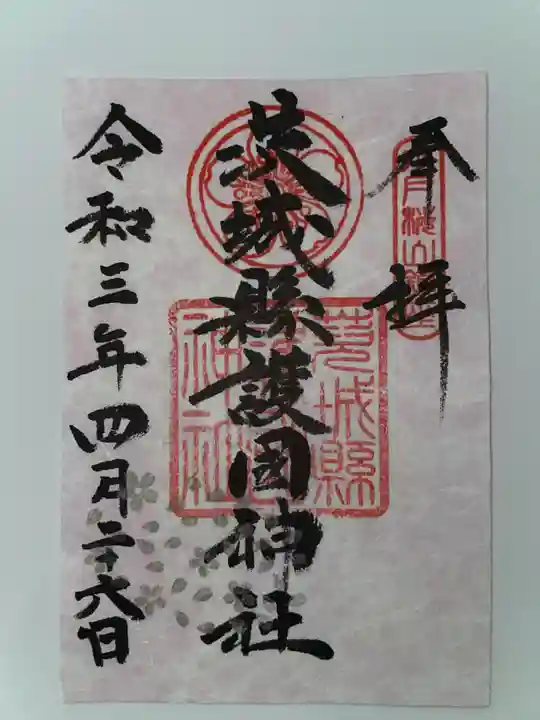 奉拝
茨城縣護国神社
令和三年四月二十六日
茨城縣
護國
神社